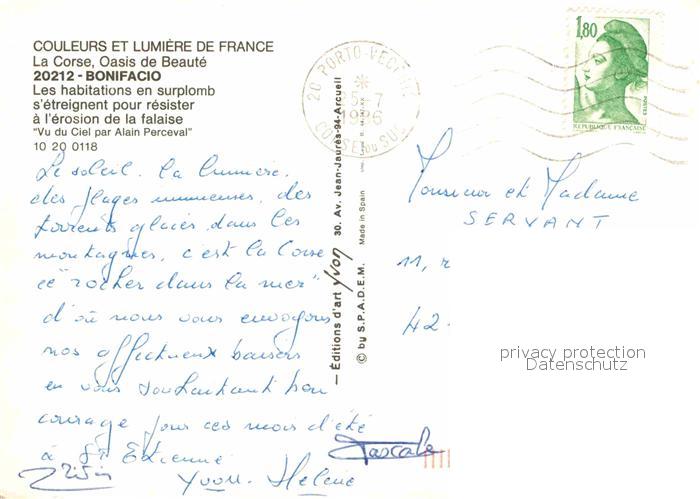 COULEURS ET LUMIÈRE DE FRANCE
La Corse, Oasis de Beauté
20212 - BONIFACIO
Les habitations en surplomb
s'étreignent pour résister
à l'érosion de la falaise
"Vu du Ciel par Alain Perceval"
10 20 0118
Le soleil, la lumière,
des plages immenses, des
torrents glacés dans les
montagnes, c'est la Corse
ce "rocher dans la mer"
d'où nous vous envoyons
nos affectueux baisers
en vous souhaitant bon
courage pour ces mois d'été
à St Etienne
Yvon. Hélène
Pascale
— Éditions d'art yvon 30. Av. Jean-Jaurès-94-Arcueil
© by S.P.A.D.E.M. Made in Spain
20 PORTO-VECCHIO
1986
CORSE DU SUD
1,80
POSTES
REPUBLIQUE FRANÇAISE
Monsieur et Madame
SERVANT
11, r
42.
privacy protection
Datenschutz